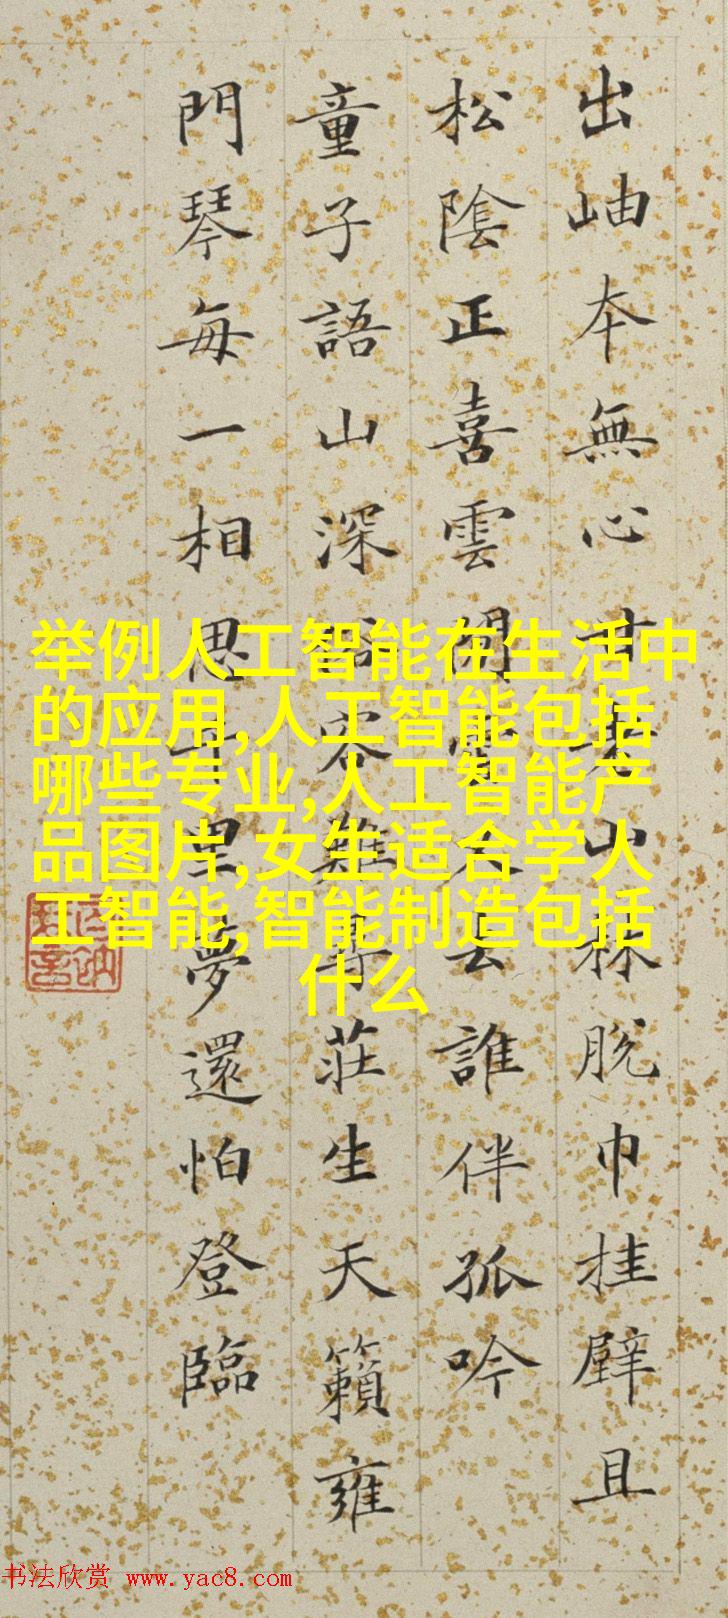 出岫本無心甘老山林脫巾挂壁且
松陰正喜雲雲去誰伴孤吟
童子語山深客難尋莊生天籟雍
門琴每一相思千里夢還怕登臨
举例人工智能在生活中
的应用,人工智能包括
哪些专业,人工智能产
品图片,女生适合学人
工智能,智能制造包括
什么
书法欣赏 www.yac8.com